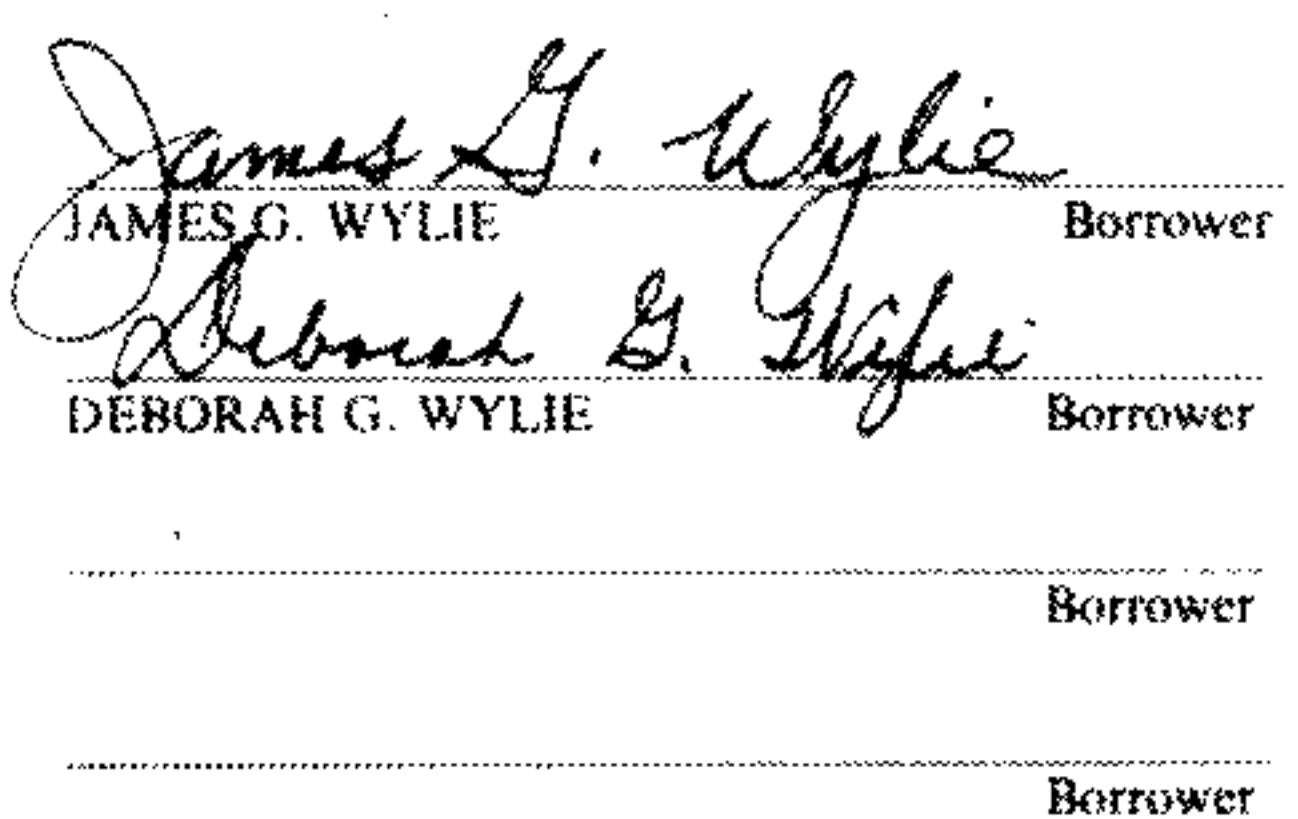 James G. Wylie
JAMES G. WYLIE Borrower
Deborah G. Wylie
DEBORAH G. WYLIE Borrower
Borrower
Borrower